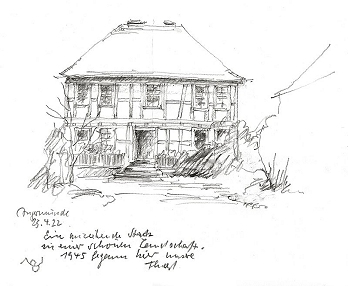 Angermünde
23.4.22
Eine Stadt
in einer schönen Landschaft.
1945 begann hier unsere
Flucht